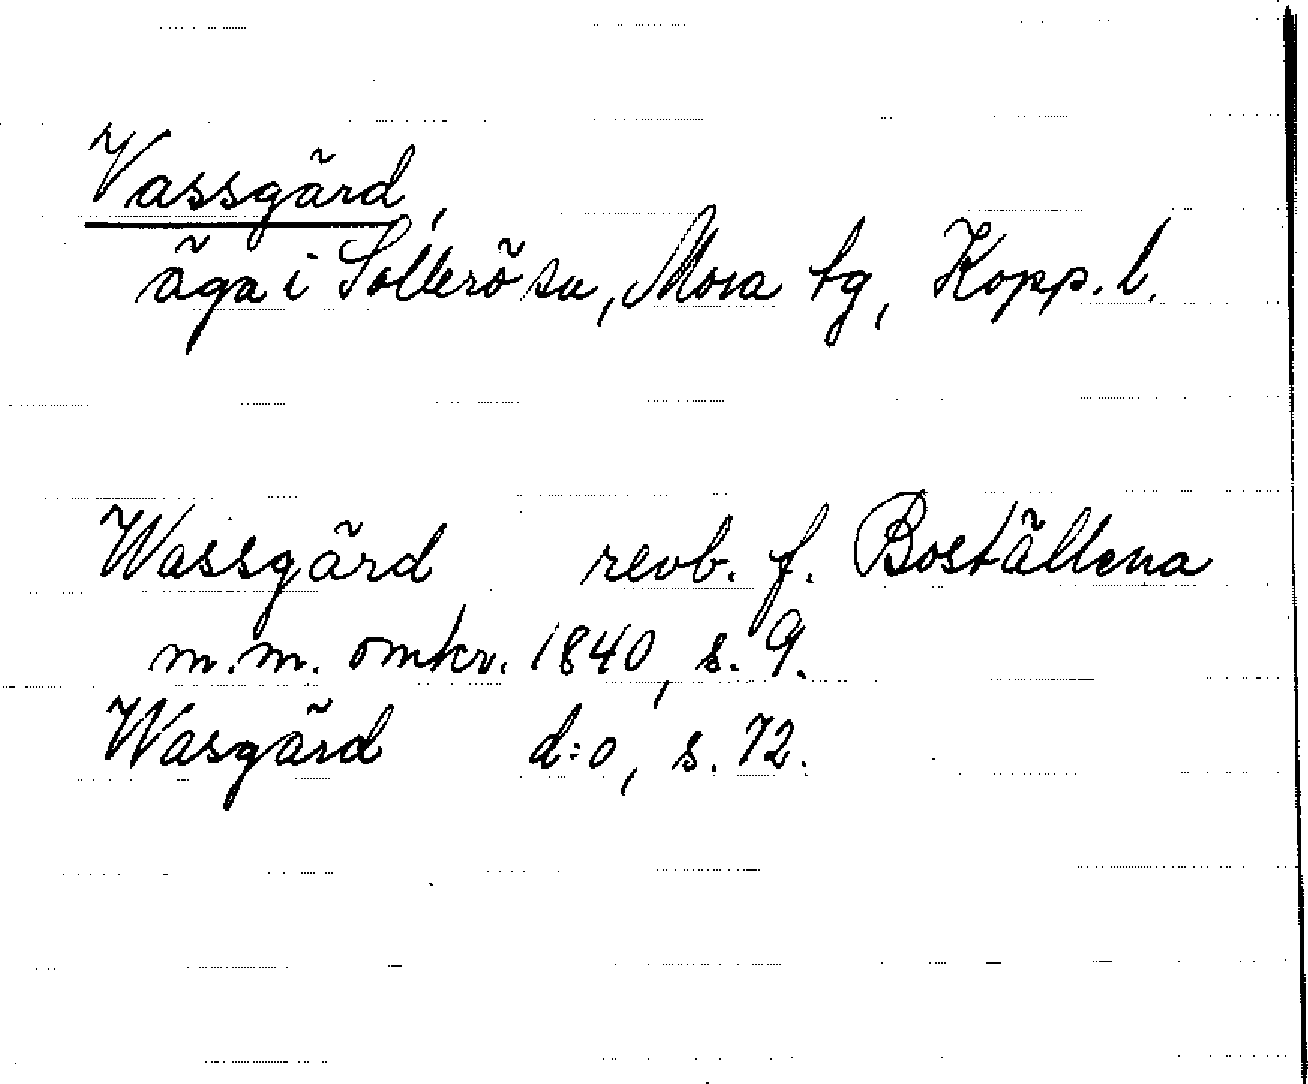 Vassgärd,
äga i Sollerö sn, Mora tg, Kopp. l.
Wassgärd revb. f. Boställena
m.m. omkr. 1840, s. 9.
Wasgärd d:o, s. 72.